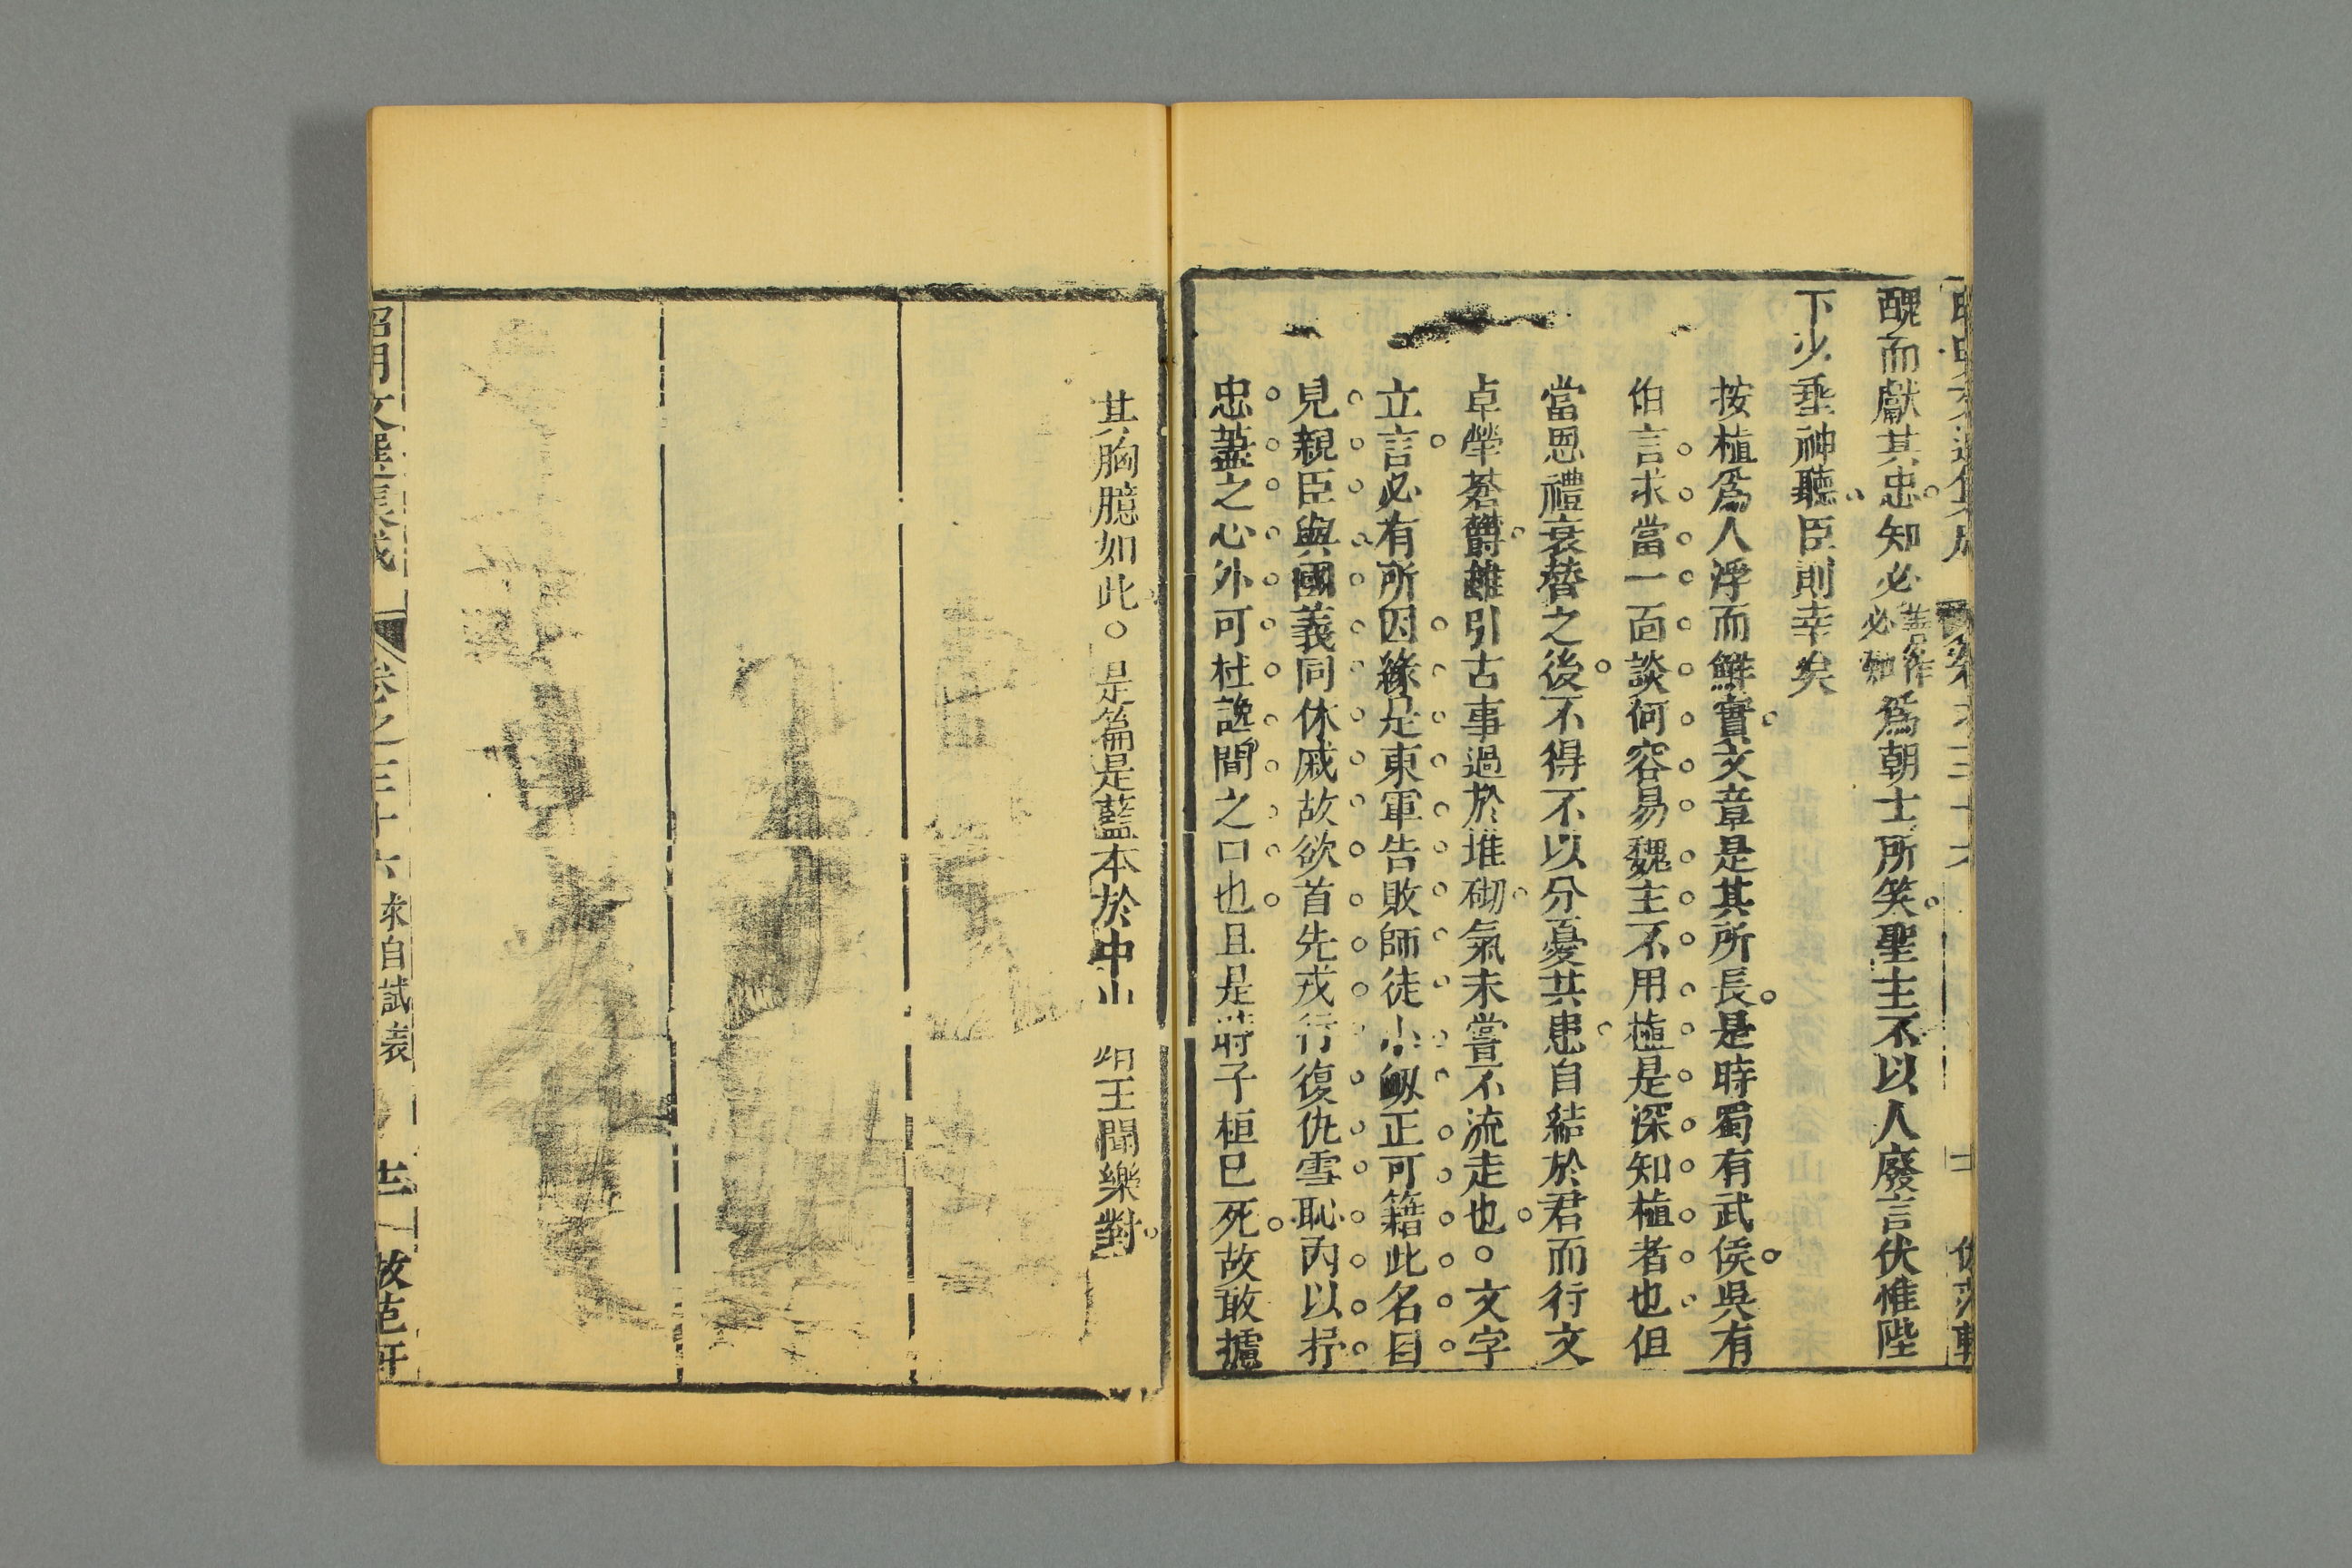 醜而獻其忠知必善作必知為朝士所笑聖主不以人廢言伏惟陛
下少垂神聽臣則幸矣
按植為人浮而鮮實文章是其所長是時蜀有武侯吳有
伯言求當一面談何容易魏主不用植是深知植者也但
當恩禮衰替之後不得不以分憂共患自結於君而行文
卓犖蒼鬱雖引古事過於堆砌氣未嘗不流走也○文字
立言必有所因緣是東軍告敗師徒小衂正可籍此名目
見親臣與國義同休戚故欲首先戎行復仇雪恥內以抒
忠藎之心外可杜讒間之口也且是時子桓已死故敢攄
其胸臆如此○是篇是藍本於中山 王聞樂對
昭明文選集成 卷之三十六 求自試表 十一 倣范軒